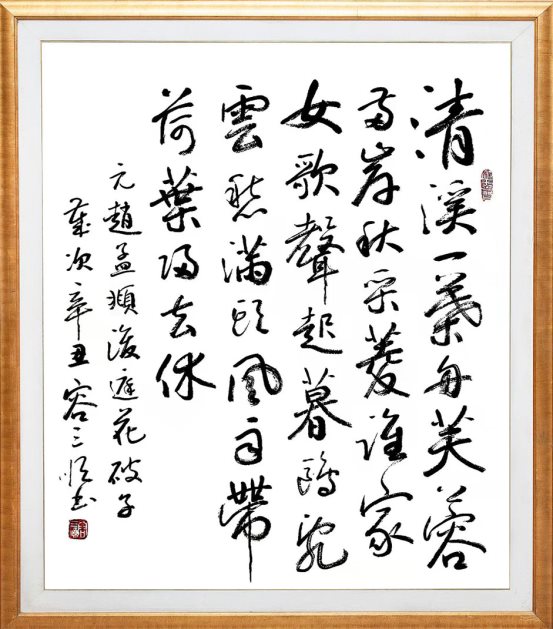 清溪一葉舟芙蓉
兩岸秋采菱誰家
女歌聲起暮鷗亂
雲愁滿頭風雨帶
荷葉歸去休
元趙孟頫後庭花破子
歲次辛丑容三恆書